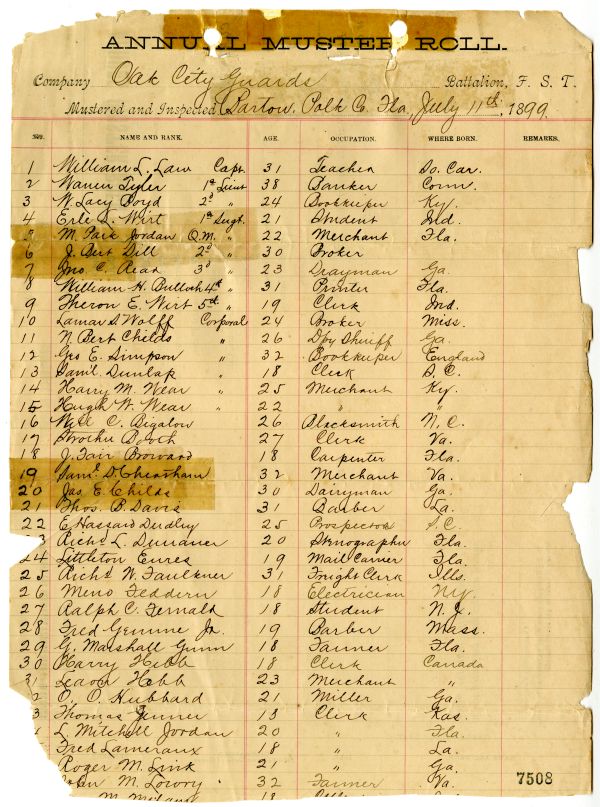 ANNUAL MUSTER ROLL.
Company Oak City Guards Battalion, F. S. T.
Mustered and Inspected Bartow, Polk Co. Fla, July 11th, 1899
No. NAME AND RANK. AGE. OCCUPATION. WHERE BORN. REMARKS.
1 William L. Law Capt. 31 Teacher So. Car.
2 Warren Tyler 1st Lieut 38 Banker Conn.
3 W. Lacy Boyd 2d " 24 Bookkeeper Ky.
4 Erle L. Wirt 1st Sergt. 21 Student Ind.
5 M. Parx Jordan Q.M. " 22 Merchant Fla.
6 J. Bert Dill 2d " 30 Broker
7 Jno. C. 3d " 23 Drayman Ga.
8 William H. Bulloch 4th " 31 Printer Fla.
9 Theron E. Wirt 5th " 19 Clerk Ind.
10 Lamar S. Wolff Corporal 24 Broker Miss.
11 N Bert Childs " 26 Dpy Sheriff Ga.
12 Geo E. Simpson " 32 Bookkeeper England
13 Saml. Dunlap " 18 Clerk S. C.
14 Harry M. Wear " 25 Merchant Ky.
15 Hugh W. Wear " 22 " "
16 Will C. Bigalow 26 Blacksmith N. C.
17 Booth 27 Clerk Va.
18 J. Fair Broward 18 Carpenter Fla.
19 Saml. D. Cheartham 32 Merchant Va.
20 Jas. E. Childs 30 Dairyman Ga.
21 Thos. B. Davis 31 Barber La.
22 E. Hassard Dudley 25 Prospector S.C.
3 Richd L. 20 Stenographer Fla.
24 Littleton Eures 19 Mail Carrier Fla.
25 Richd W. Faulkner 31 Freight Clerk Ills.
26 Meno Feddern 18 Electrician N.Y.
27 Ralph C. Fernald 18 Student N. J.
28 Fred Gemme Jr. 19 Barber Mass.
29 G. Marshall Gunn 18 Farmer Fla.
30 Harry Hebb 18 Clerk Canada
31 Leavon Hebb 23 Merchant "
2 O. O. Hubbard 21 Miller Ga.
3 Thomas Jenner 18 Clerk Kas.
4 L Mitchell Jordan 20 " Fla.
Fred Lameraux 18 " La.
Roger M. Link 21 " Ga.
John M. Lowry 32 Farmer Va.
M. 18
7508